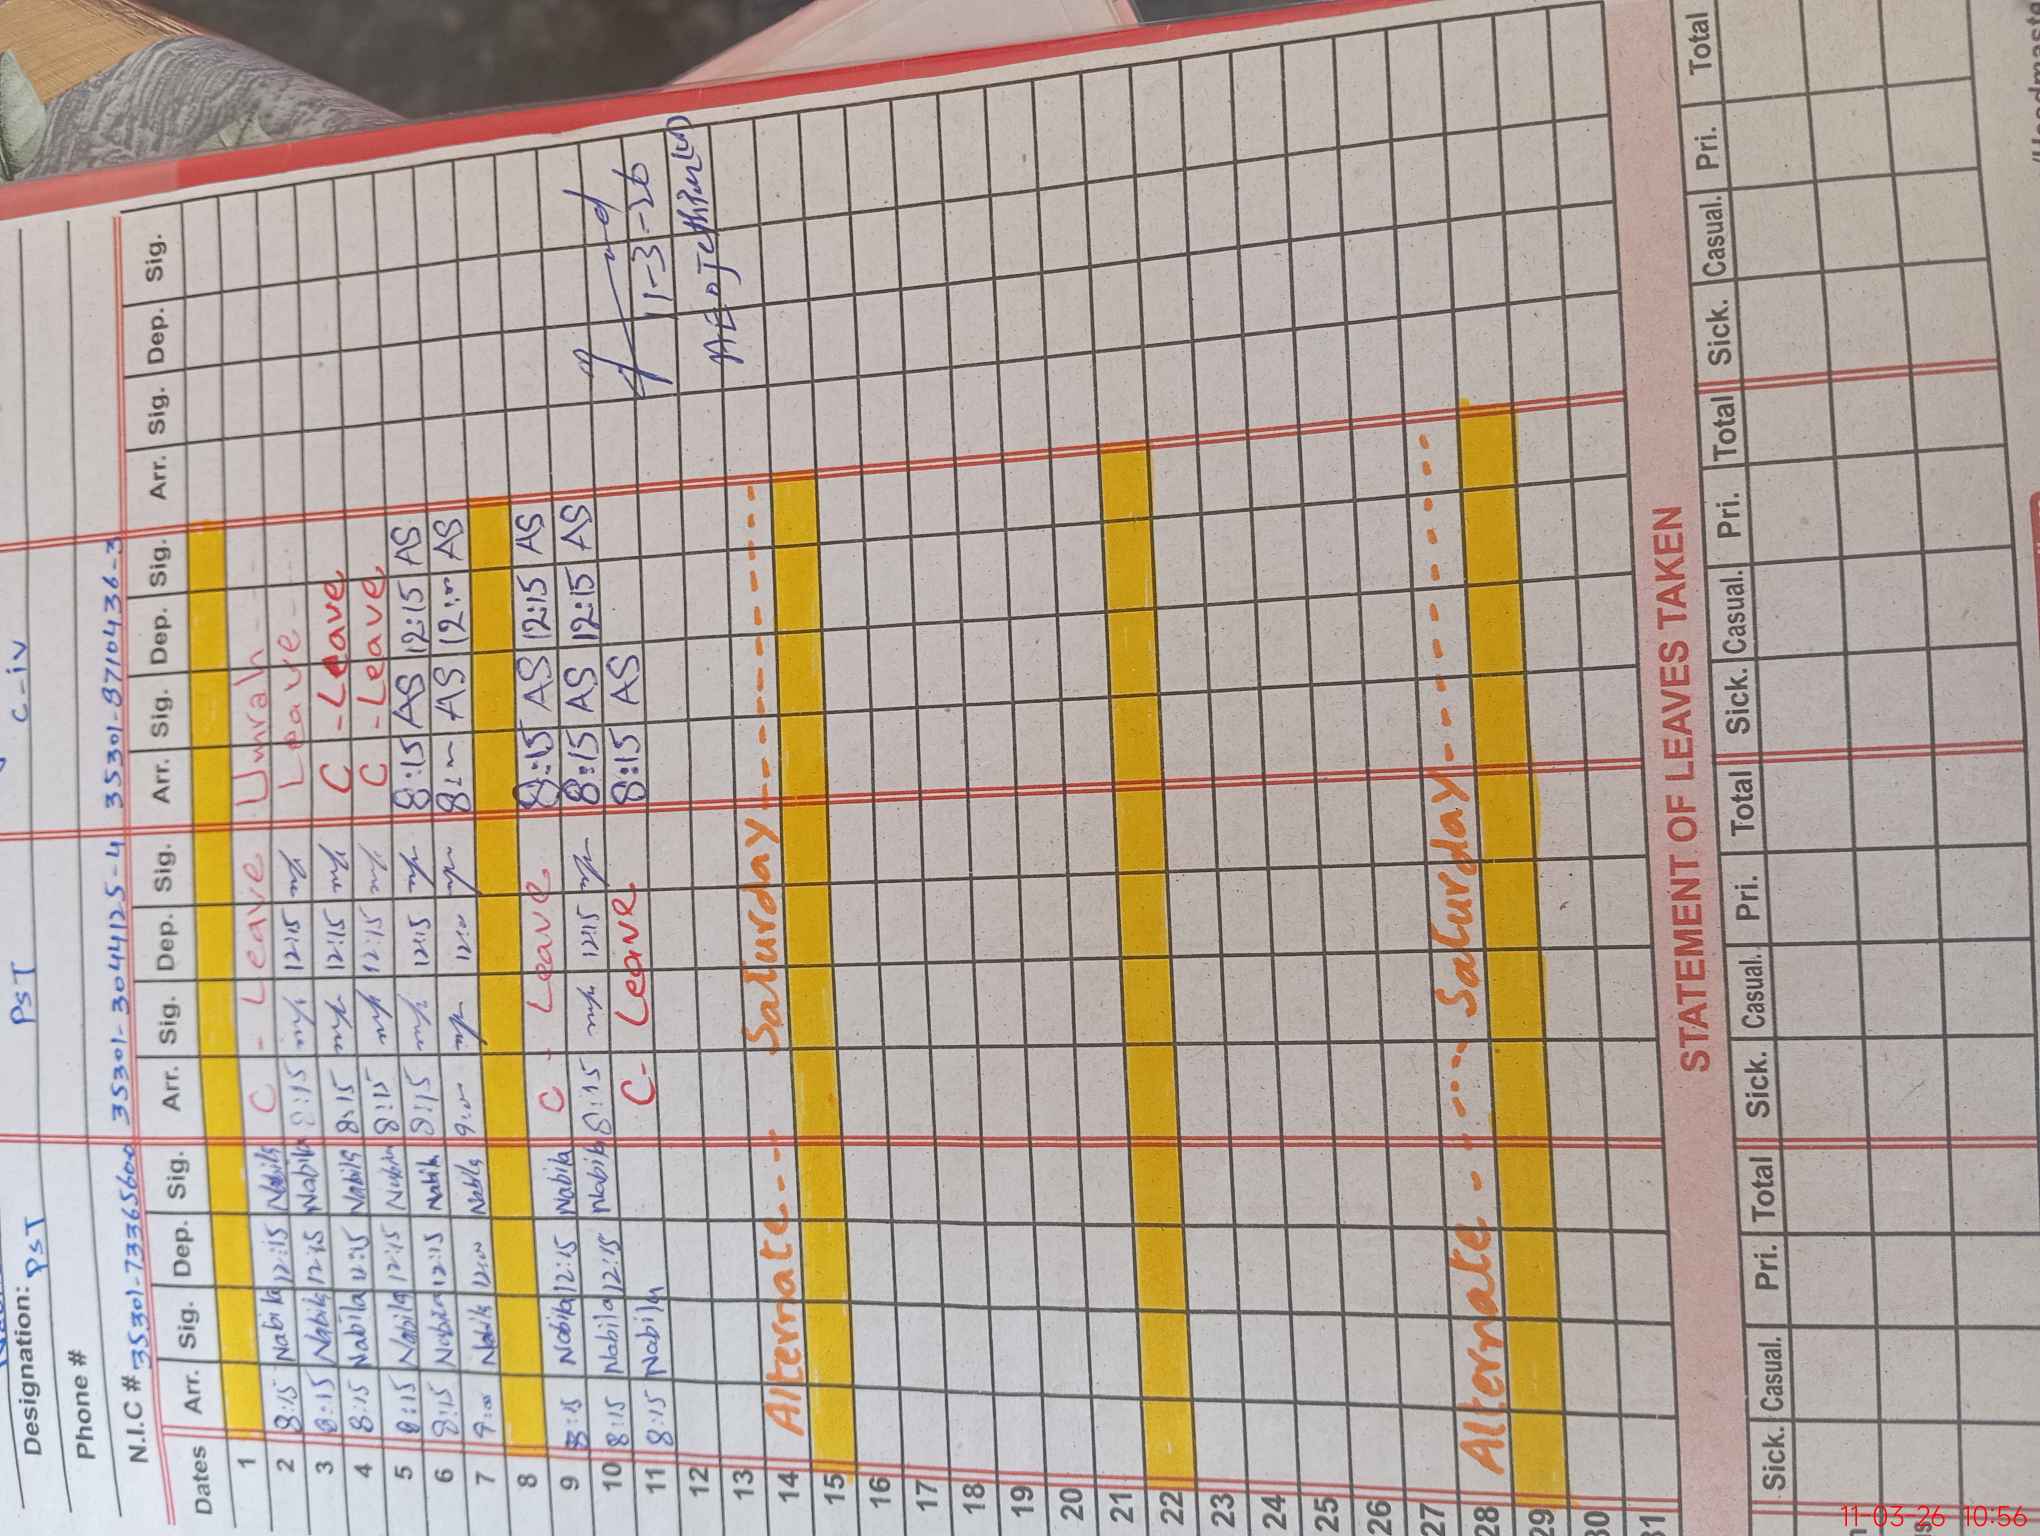 Designation: PST PST C-iv
Phone #
N.I.C # 35301-7336560 35301-3044125-4 35301-8710436-3
Dates Arr. Sig. Dep. Sig. Arr. Sig. Dep. Sig. Arr. Sig. Dep. Sig. Arr. Sig. Dep. Sig.
1
2 8:15 Nabila 12:15 Nabila C - Leave Umrah
3 8:15 Nabila 12:15 Nabila 8:15 12:15 Leave
4 8:15 Nabila 12:15 Nabila 8:15 12:15 C - Leave
5 8:15 Nabila 12:15 Nabila 8:15 12:15 C - Leave
6 8:15 Nabila 12:15 Nabila 8:15 12:15 8:15 AS 12:15 AS
7 9:00 Nabila 12:00 Nabila 9:00 12:00 AS AS
8
9 8:15 Nabila 12:15 Nabila C - Leave 8:15 AS 12:15 AS
10 8:15 Nabila 12:15 Nabila 8:15 12:15 8:15 AS 12:15 AS
11 8:15 Nabila C - Leave 8:15 AS
11-3-26
12
13
14 Alternate Saturday
15
16
17
18
19
20
21
22
23
24
25
26
27
28 Alternate Saturday
29
30
31
STATEMENT OF LEAVES TAKEN
Sick. Casual. Pri. Total Sick. Casual. Pri. Total Sick. Casual. Pri. Total Sick. Casual. Pri. Total
11-03-26 10:56